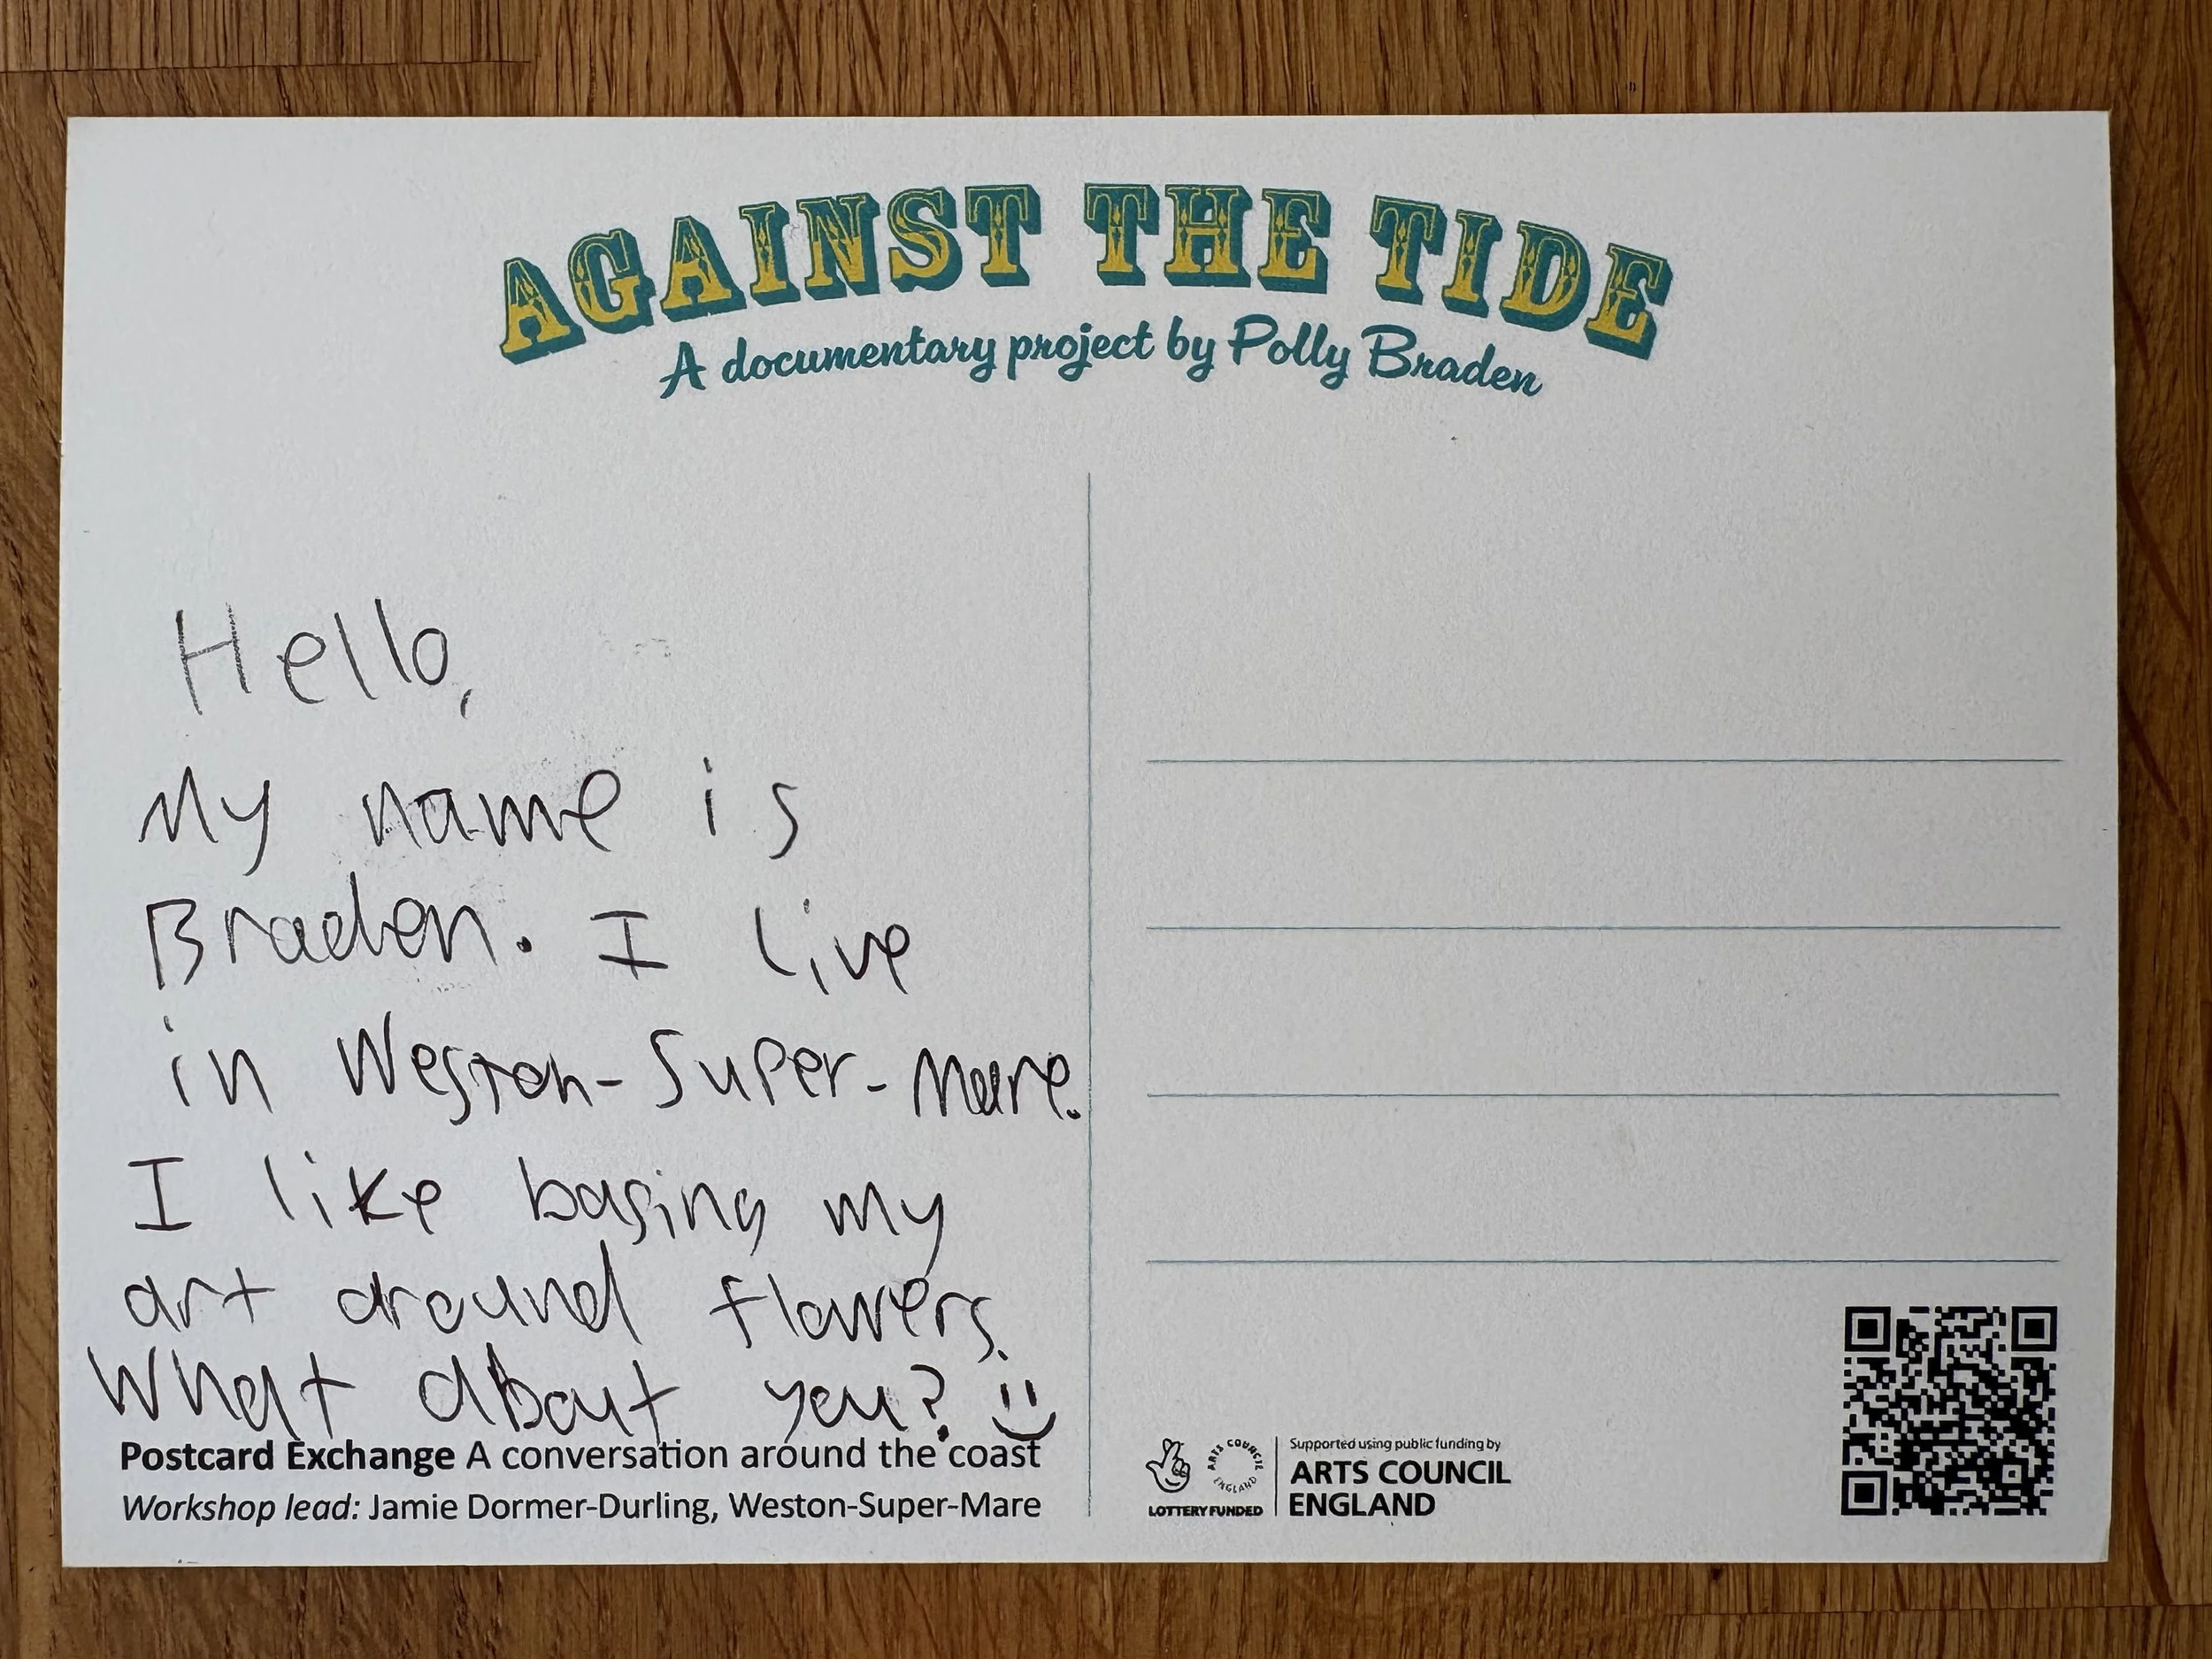 AGAINST THE TIDE
A documentary project by Polly Braden
Hello,
My name is
Braden. I live
in Weston-Super-Mare.
I like basing my
art around flowers.
What about you? :)
Postcard Exchange A conversation around the coast
Workshop lead: Jamie Dormer-Durling, Weston-Super-Mare
ARTS COUNCIL ENGLAND
LOTTERY FUNDED
Supported using public funding by
ARTS COUNCIL
ENGLAND